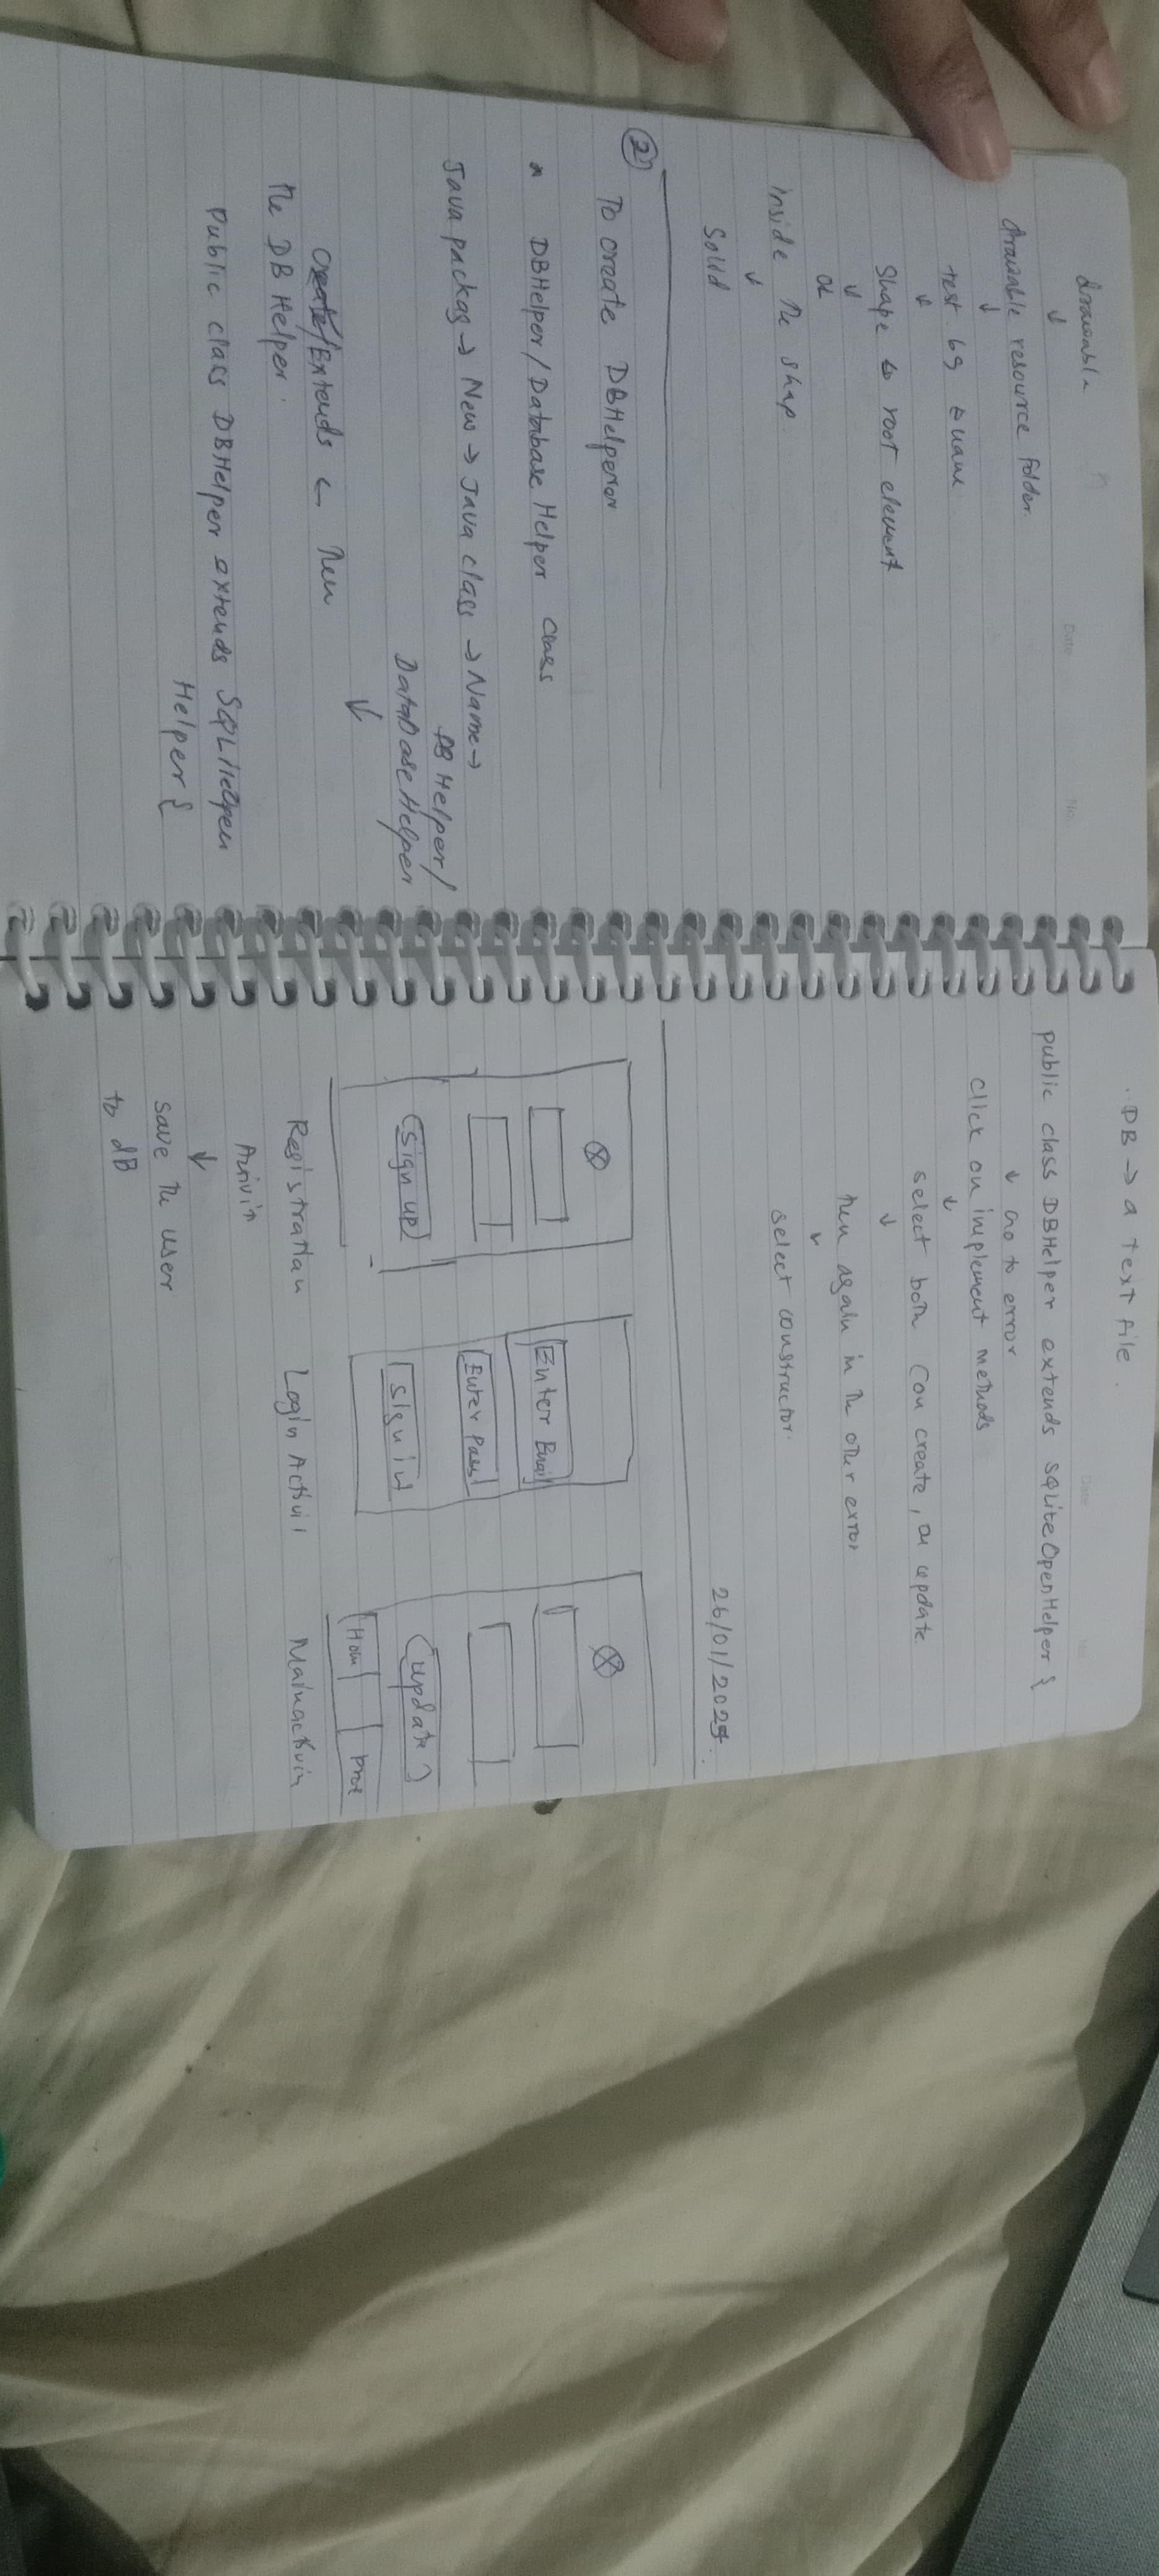 drawable
↓
drawable resource folder.
↓
test.bg ← name
↓
Shape ↔ root element
↓
OK
Inside the shap.
↓
Solid
② To create DBHelperor
* DBHelper/Database Helper class
Java packag → New → Java class → Name →
DB Helper/
DataBaseHelper
↓
Create/Extends ← then
the DB Helper.
Public class DBHelper extends SQLiteOpen
Helper {
Date
No.
DB → a Text file.
public class DBHelper extends SQLiteOpenHelper {
↓ Go to error
Click on implement methods
↓
Select both (on create, on update
↓
then again in the other error
↓
select constructor.
26/01/2025.
Sign up
Enter Email
Enter pass
Sign in
update
Hom
Proe
Registration
Activin
Login Activit
Mainactivin
↓
Save the user
to dB
Date
No.